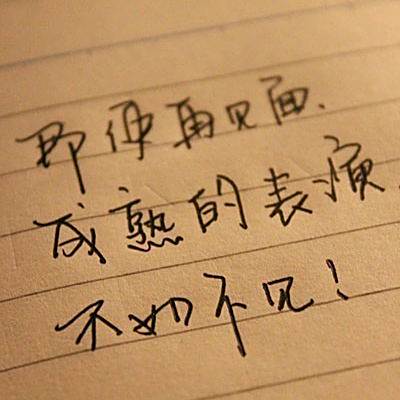 即便再见面、
成熟的表演、
不如不见！